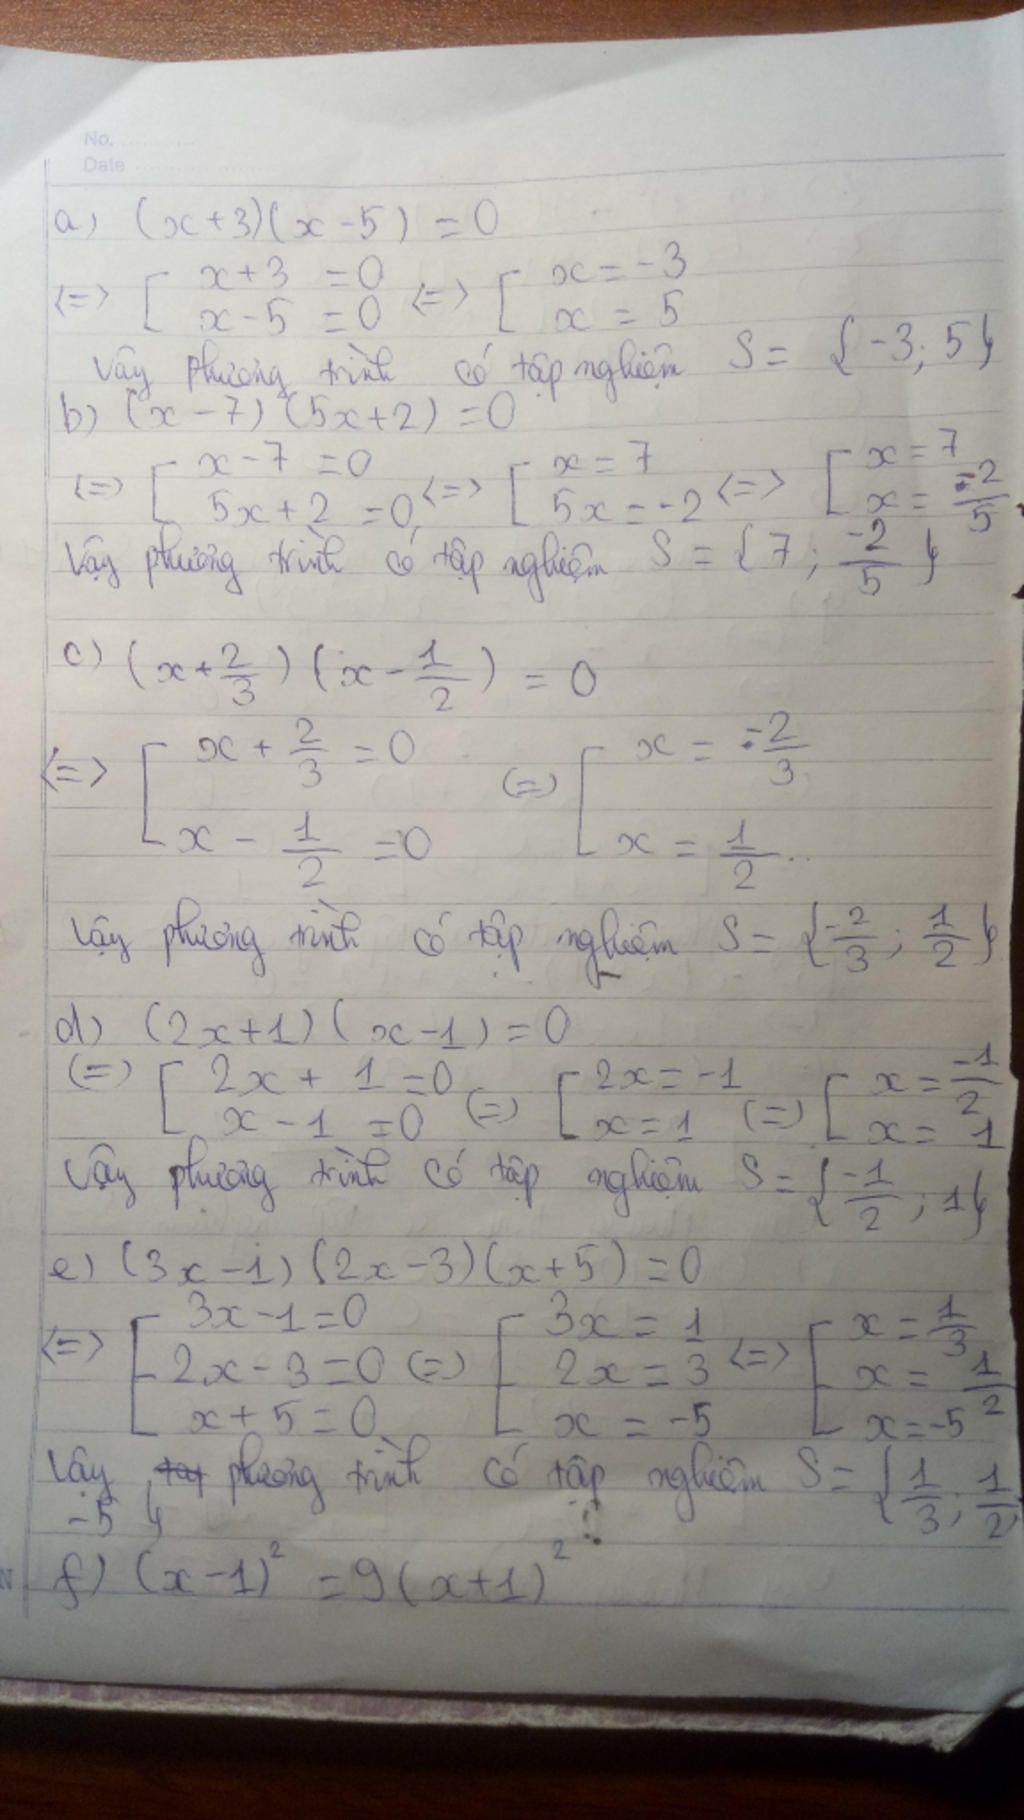 No.
Date
a) (x+3)(x-5) = 0
<=> [ x+3 = 0 ; x-5 = 0 <=> [ x = -3 ; x = 5
Vậy phương trình có tập nghiệm S = {-3; 5}
b) (x-7)(5x+2) = 0
<=> [ x-7 = 0 ; 5x+2 = 0 <=> [ x = 7 ; 5x = -2 <=> [ x = 7 ; x = -2/5
Vậy phương trình có tập nghiệm S = {7; -2/5}
c) (x + 2/3)(x - 1/2) = 0
<=> [ x + 2/3 = 0 ; x - 1/2 = 0 (=) [ x = -2/3 ; x = 1/2
Vậy phương trình có tập nghiệm S = {-2/3; 1/2}
d) (2x+1)(x-1) = 0
(=) [ 2x + 1 = 0 ; x - 1 = 0 (=) [ 2x = -1 ; x = 1 (=) [ x = -1/2 ; x = 1
Vậy phương trình có tập nghiệm S = {-1/2; 1}
e) (3x-1)(2x-3)(x+5) = 0
<=> [ 3x-1 = 0 ; 2x-3 = 0 ; x+5 = 0 (=) [ 3x = 1 ; 2x = 3 ; x = -5 <=> [ x = 1/3 ; x = 1/2 ; x = -5
Vậy phương trình có tập nghiệm S = {1/3; 1/2;
-5}
f) (x-1)² = 9(x+1)²